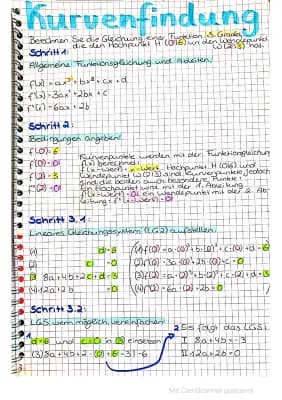 Kurvenfindung
Berechnen Sie die Gleichung einer Funktion 3. Grades,
die den Hochpunkt H (0|6) und den Wendepunkt
W (2|3) hat.
Schritt 1:
Allgemeine Funktionsgleichung und Ableiten.
f(x) = ax³ + bx² + cx + d
f'(x) = 3ax² + 2bx + c
f''(x) = 6ax + 2b
Schritt 2:
Bedingungen angeben!
f(0) = 6
f'(0) = 0
f(2) = 3
f''(2) = 0
Kurvenpunkte werden mit der Funktionsgleichung
f(x) berechnet:
f(x-Wert) = y-Wert. Hochpunkt H (0|6) und
Wendepunkt W(2|3) sind Kurvenpunkte, jedoch
sind die beiden auch besondere Punkte:
ein Hochpunkt wird mit der 1. Ableitung
f'(x-Wert) = 0, ein Wendepunkt mit der 2. Ab-
leitung: f''(x-Wert) = 0
Schritt 3.1:
Lineares Gleichungssystem (LGS) aufstellen:
(1) d = 6
(2) c = 0
(3) 8a + 4b + 2c + d = 3
(4) 12a + 2b = 0
(1) f(0) = a·(0)³ + b·(0)² + c·(0) + d = 6
(2) f'(0) = 3a·(0)² + 2b·(0) + c = 0
(3) f(2) = a·(2)³ + b·(2)² + c·(2) + d = 3
(4) f''(2) = 6a·(2) + 2b = 0
Schritt 3.2:
LGS wenn möglich vereinfachen!
1 d = 6 und c = 0 in 3 einsetzen
(3) 8a + 4b + 2·(0) + 6 = 3 | -6
2 Es folgt das LGS:
I 8a + 4b = -3
II 12a + 2b = 0
Mit CamScanner gescannt